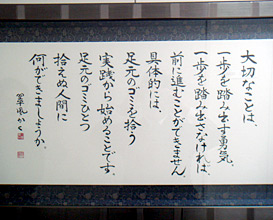 大切なことは、
一歩を踏み出す勇気。
一歩を踏み出さなければ、
前に進むことができません。
具体的には、
足元のゴミを拾う
実践から始めることです。
足元のゴミひとつ
拾えぬ人間に
何ができましょうか。
かく